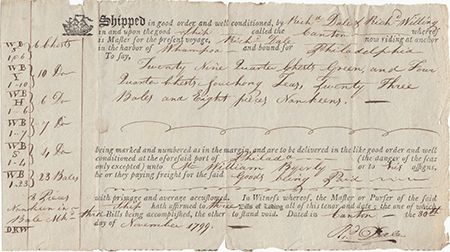 Shipped in good order and well conditioned, by Richd. Dale & Richd. Willing
in and upon the good Ship called the Canton whereof
is Master for the present voyage, Richd. Dale now riding at anchor
in the harbor of Whampoa and bound for Philadelphia
To say,
Twenty Nine Quarter Chests Green, and Four
Quarter Chests Souchong Teas, Twenty Three
Bales and Eight pieces Nankeens.
WB
1 @ 6
6 Chests
WB
Y
1-10
10 Do
WB
H
1-6
6 Do
WB
1-7
7 Do
WB
S
1-4
4 Do
WB
1-23
23 Bales
8 Pieces
Nankeen in
Bale
being marked and numbered as in the margin, and are to be delivered in the like good order and well
conditioned at the aforesaid port of Philada (the danger of the seas
only excepted) unto Mr William or to his assigns,
he or they paying freight for the said Goods being
with primage and average accustomed. In Witness whereof, the Master or Purser of the said
Ship hath affirmed to Three Bills of Lading all
of this tenor and date; the one of which
Bills being accomplished, the other to stand void. Dated in Canton the 30th
day of November 1799.